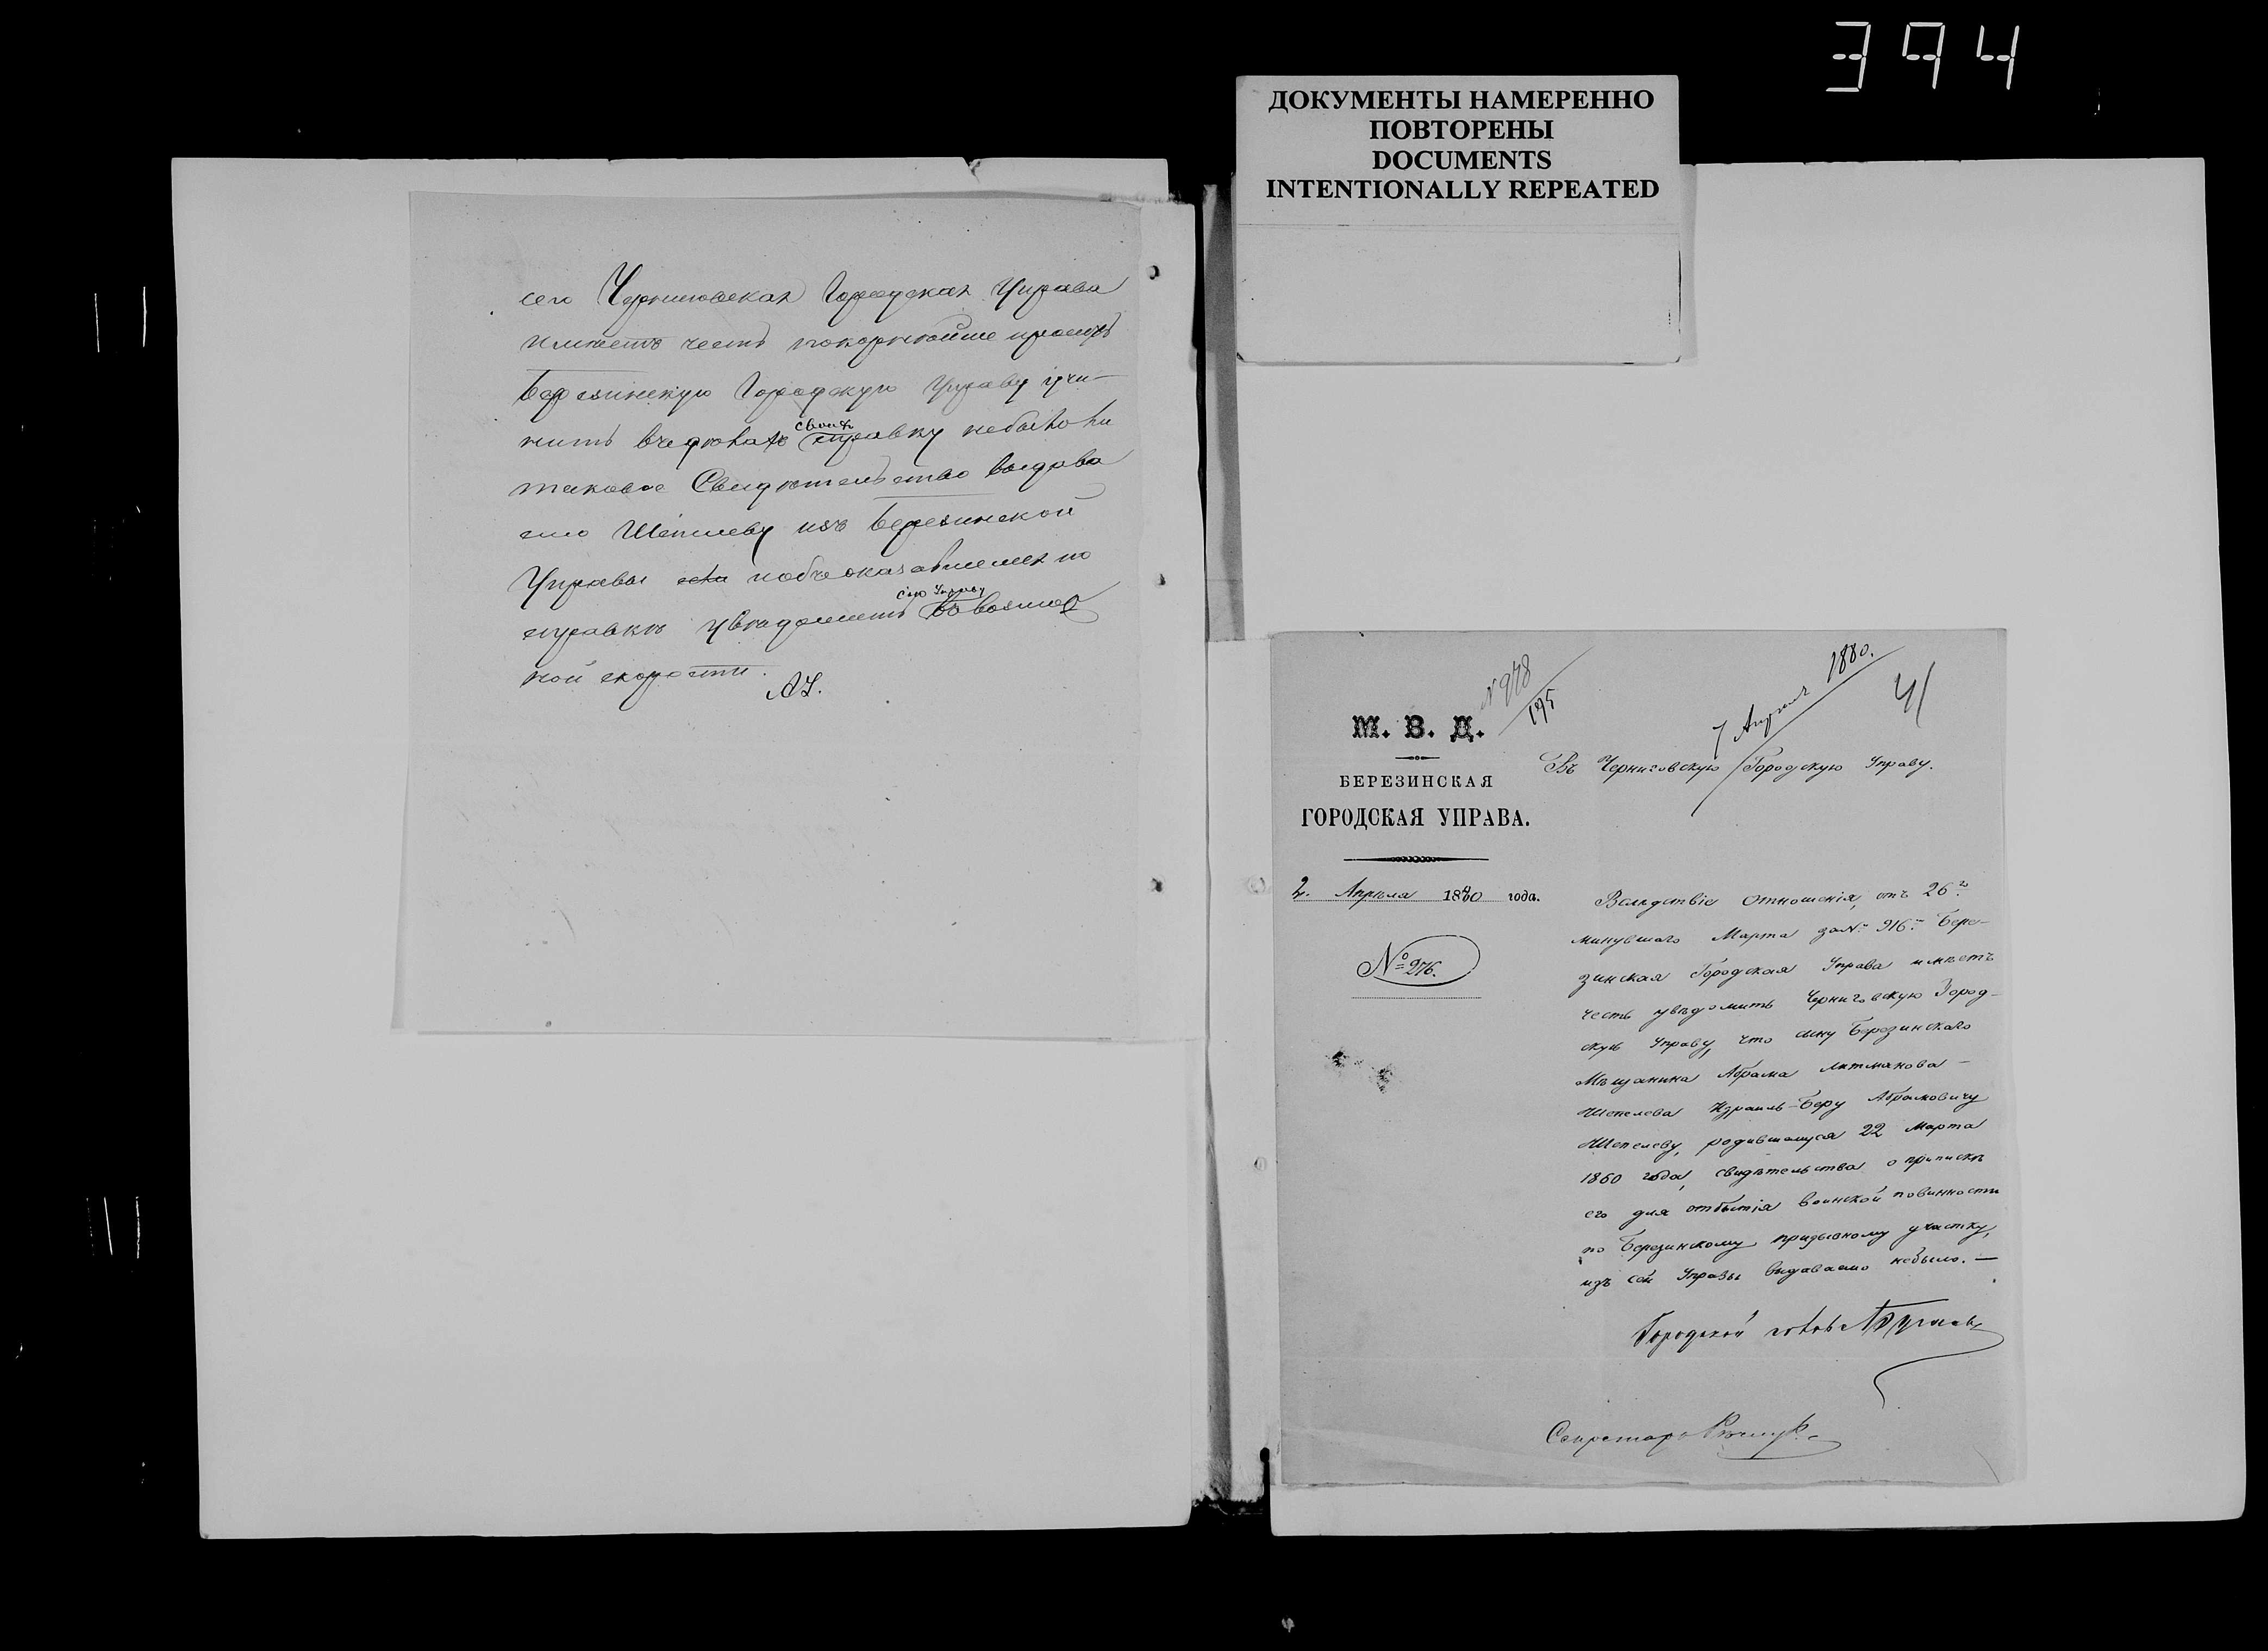 394
ДОКУМЕНТЫ НАМЕРЕННО
ПОВТОРЕНЫ
DOCUMENTS
INTENTIONALLY REPEATED
сего Черниговская Городская Управа
имѣетъ честь покорнѣйше просить
Березинскую Городскую Управу учи-
нить въ дѣлахъ своихъ справку небыло ли
таковое Свидѣтельство выдава
емо Шепелеву изъ Березинской
Управы и объ оказавшемся по
справкѣ увѣдомить сію Управу въ возмож
ной скорости.
№ 978
195
7 Апреля 1880.
41
М. В. Д.
БЕРЕЗИНСКАЯ
ГОРОДСКАЯ УПРАВА.
2. Апрѣля 1880 года.
№ 276.
Въ Черниговскую Городскую Управу.
Вслѣдствіе отношенія, отъ 26го
минувшаго Марта за № 916. Бере-
зинская Городская Управа имѣетъ
честь увѣдомить Черниговскую Город-
скую Управу, что сыну Березинскаго
Мѣщанина Абрама Литманова
Шепелева Израиль-Беру Абрамовичу
Шепелеву, родившемуся 22 Марта
1860 года, свидѣтельства о припискѣ
его для отбытія воинской повинности
по Березинскому призывному участку,
изъ сей Управы выдаваемо небыло. —
Городской голова
Секретарь